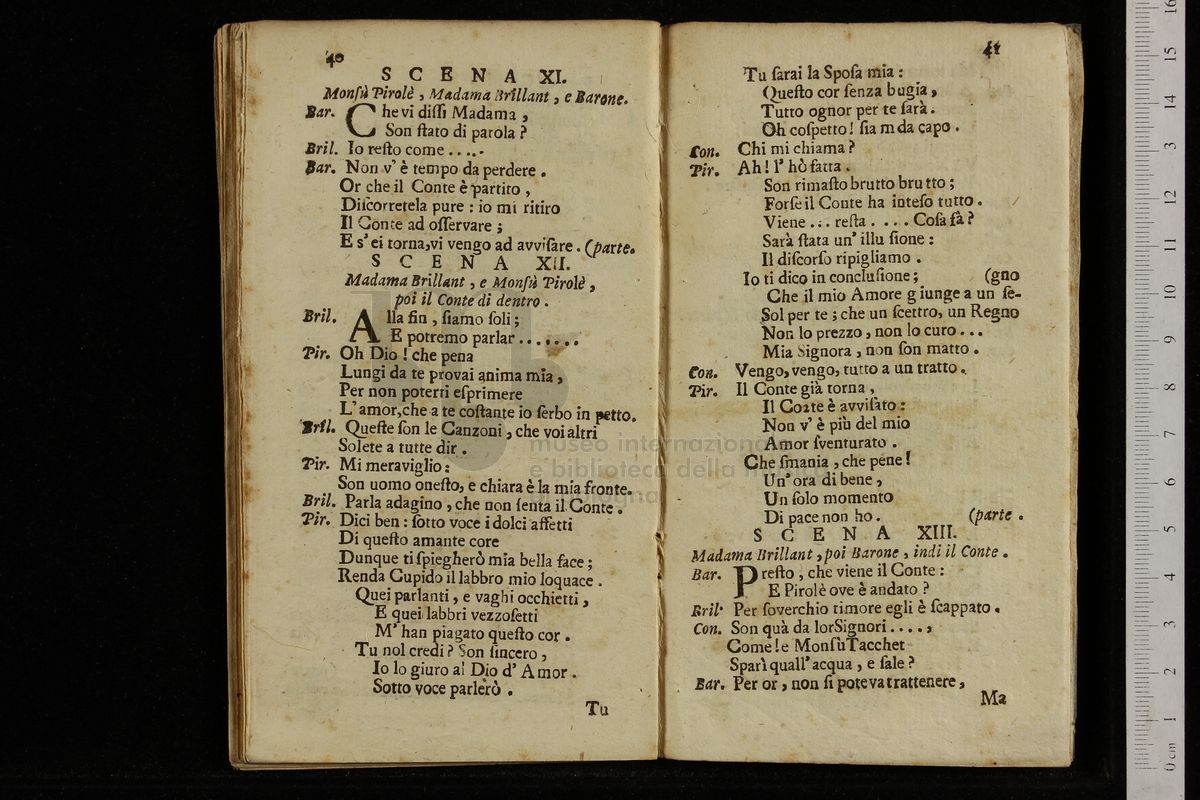 40
SCENA XI.
Monsù Pirolè, Madama Brillant, e Barone.
Bar. Che vi dissi Madama,
Son stato di parola?
Bril. Io resto come.....
Bar. Non v'è tempo da perdere.
Or che il Conte è partito,
Discorretela pure: io mi ritiro
Il Conte ad osservare;
E s'ei torna, vi vengo ad avvisare. (parte.
SCENA XII.
Madama Brillant, e Monsù Pirolè,
poi il Conte di dentro.
Bril. Alla fin, siamo soli;
E potremo parlar.......
Pir. Oh Dio! che pena
Lungi da te provai anima mia,
Per non poterti esprimere
L'amor, che a te costante io serbo in petto.
Bril. Queste son le Canzoni, che voi altri
Solete a tutte dir.
Pir. Mi meraviglio:
Son uomo onesto, e chiara è la mia fronte.
Bril. Parla adagino, che non senta il Conte.
Pir. Dici ben: sotto voce i dolci affetti
Di questo amante core
Dunque ti spiegherò mia bella face;
Renda Cupido il labbro mio loquace.
Quei parlanti, e vaghi occhietti,
E quei labbri vezzosetti
M'han piagato questo cor.
Tu nol credi? Son sincero,
Io lo giuro al Dio d'Amor.
Sotto voce parlerò.
Tu
41
Tu sarai la Sposa mia:
Questo cor senza bugia,
Tutto ognor per te sarà.
Oh cospetto! siam da capo.
Con. Chi mi chiama?
Pir. Ah! l'hò fatta.
Son rimasto brutto brutto;
Forse il Conte ha inteso tutto.
Viene... resta.... Cosa fà?
Sarà stata un'illusione:
Il discorso ripigliamo.
Io ti dico in conclusione; (gno
Che il mio Amore giunge a un se-
Sol per te; che un scettro, un Regno
Non lo prezzo, non lo curo...
Mia Signora, non son matto.
Con. Vengo, vengo, tutto a un tratto.
Pir. Il Conte già torna,
Il Coate è avvisato:
Non v'è più del mio
Amor sventurato.
Che smania, che pene!
Un'ora di bene,
Un solo momento
Di pace non ho. (parte.
SCENA XIII.
Madama Brillant, poi Barone, indi il Conte.
Bar. Presto, che viene il Conte:
E Pirolè ove è andato?
Bril. Per soverchio timore egli è scappato.
Con. Son quà da lor Signori....,
Come! e Monsù Tacchet
Sparì quall'acqua, e sale?
Bar. Per or, non si poteva trattenere,
Ma
museo internazionale
e biblioteca della musica
di bologna